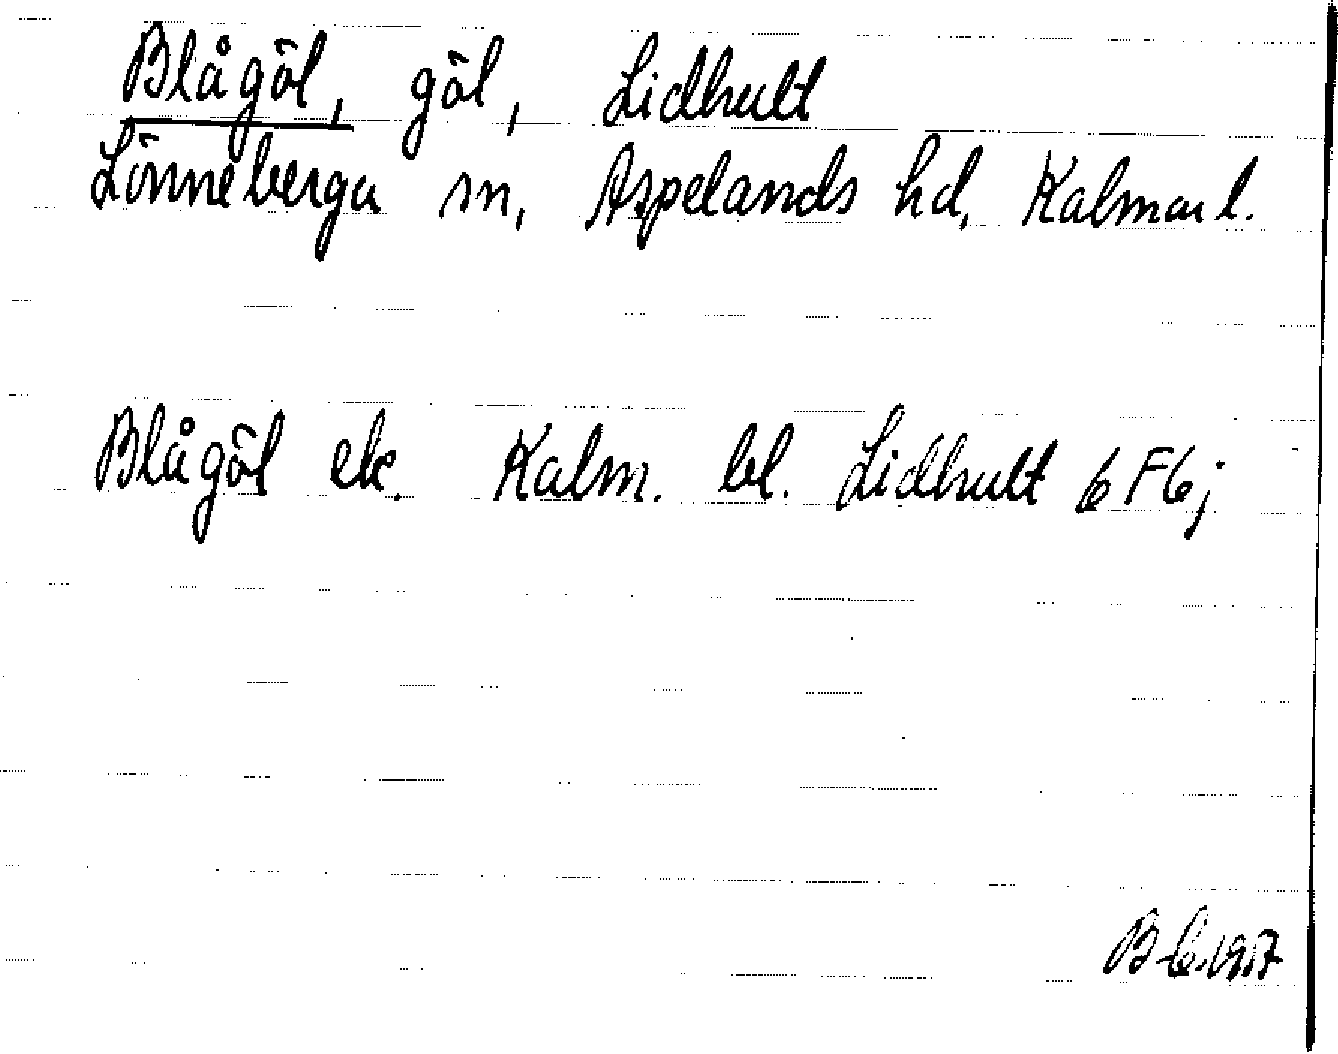 Blågöl, göl, Lidhult
Lönneberga sn, Aspelands hd, Kalmar l.
Blågöl ek. Kalm. bl. Lidhult 6F6j